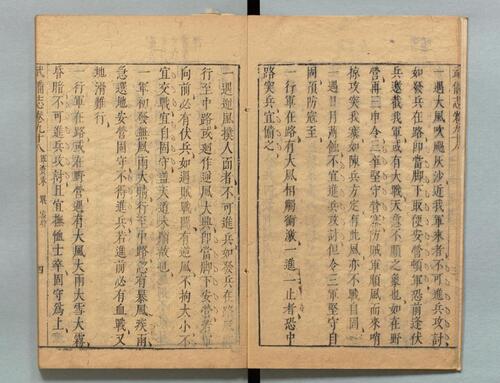 武備志卷九十八
一遇大風吹颺灰沙近我軍來者不可進兵攻討
如發兵在路即當脚下取便安營頓軍恐前逢伏
兵邀截我軍或有大戰天意不順之象也如在野
營再三申令三軍堅守營寨防賊軍順風而來哨
掠攻突我寨如陳兵方定有此風亦不戰自固
一遇日月薄蝕不宜進兵攻討但令三軍堅守自
固預防敵至
一行軍在路有大風相觸衝激一進一止者恐中
路突兵宜備之
一遇逆風撲人面者不可進兵如發兵在路
行至中路或迴作逆風大興即當脚下安營若
向前必有伏兵如遇賊戰間有逆風不拘大小不
宜交戰宜自固守蓋天道未順故也
一軍初發無風雨大晴行至中路忽有暴風疾雨
急選地安營固守不得進兵若進前必有血戰又
地滑難行
一行軍在路或在野營遇有大風大雨大雪大霧
昏暗不可進兵攻討且宜撫恤士卒固守爲上
武備志卷九十八
四